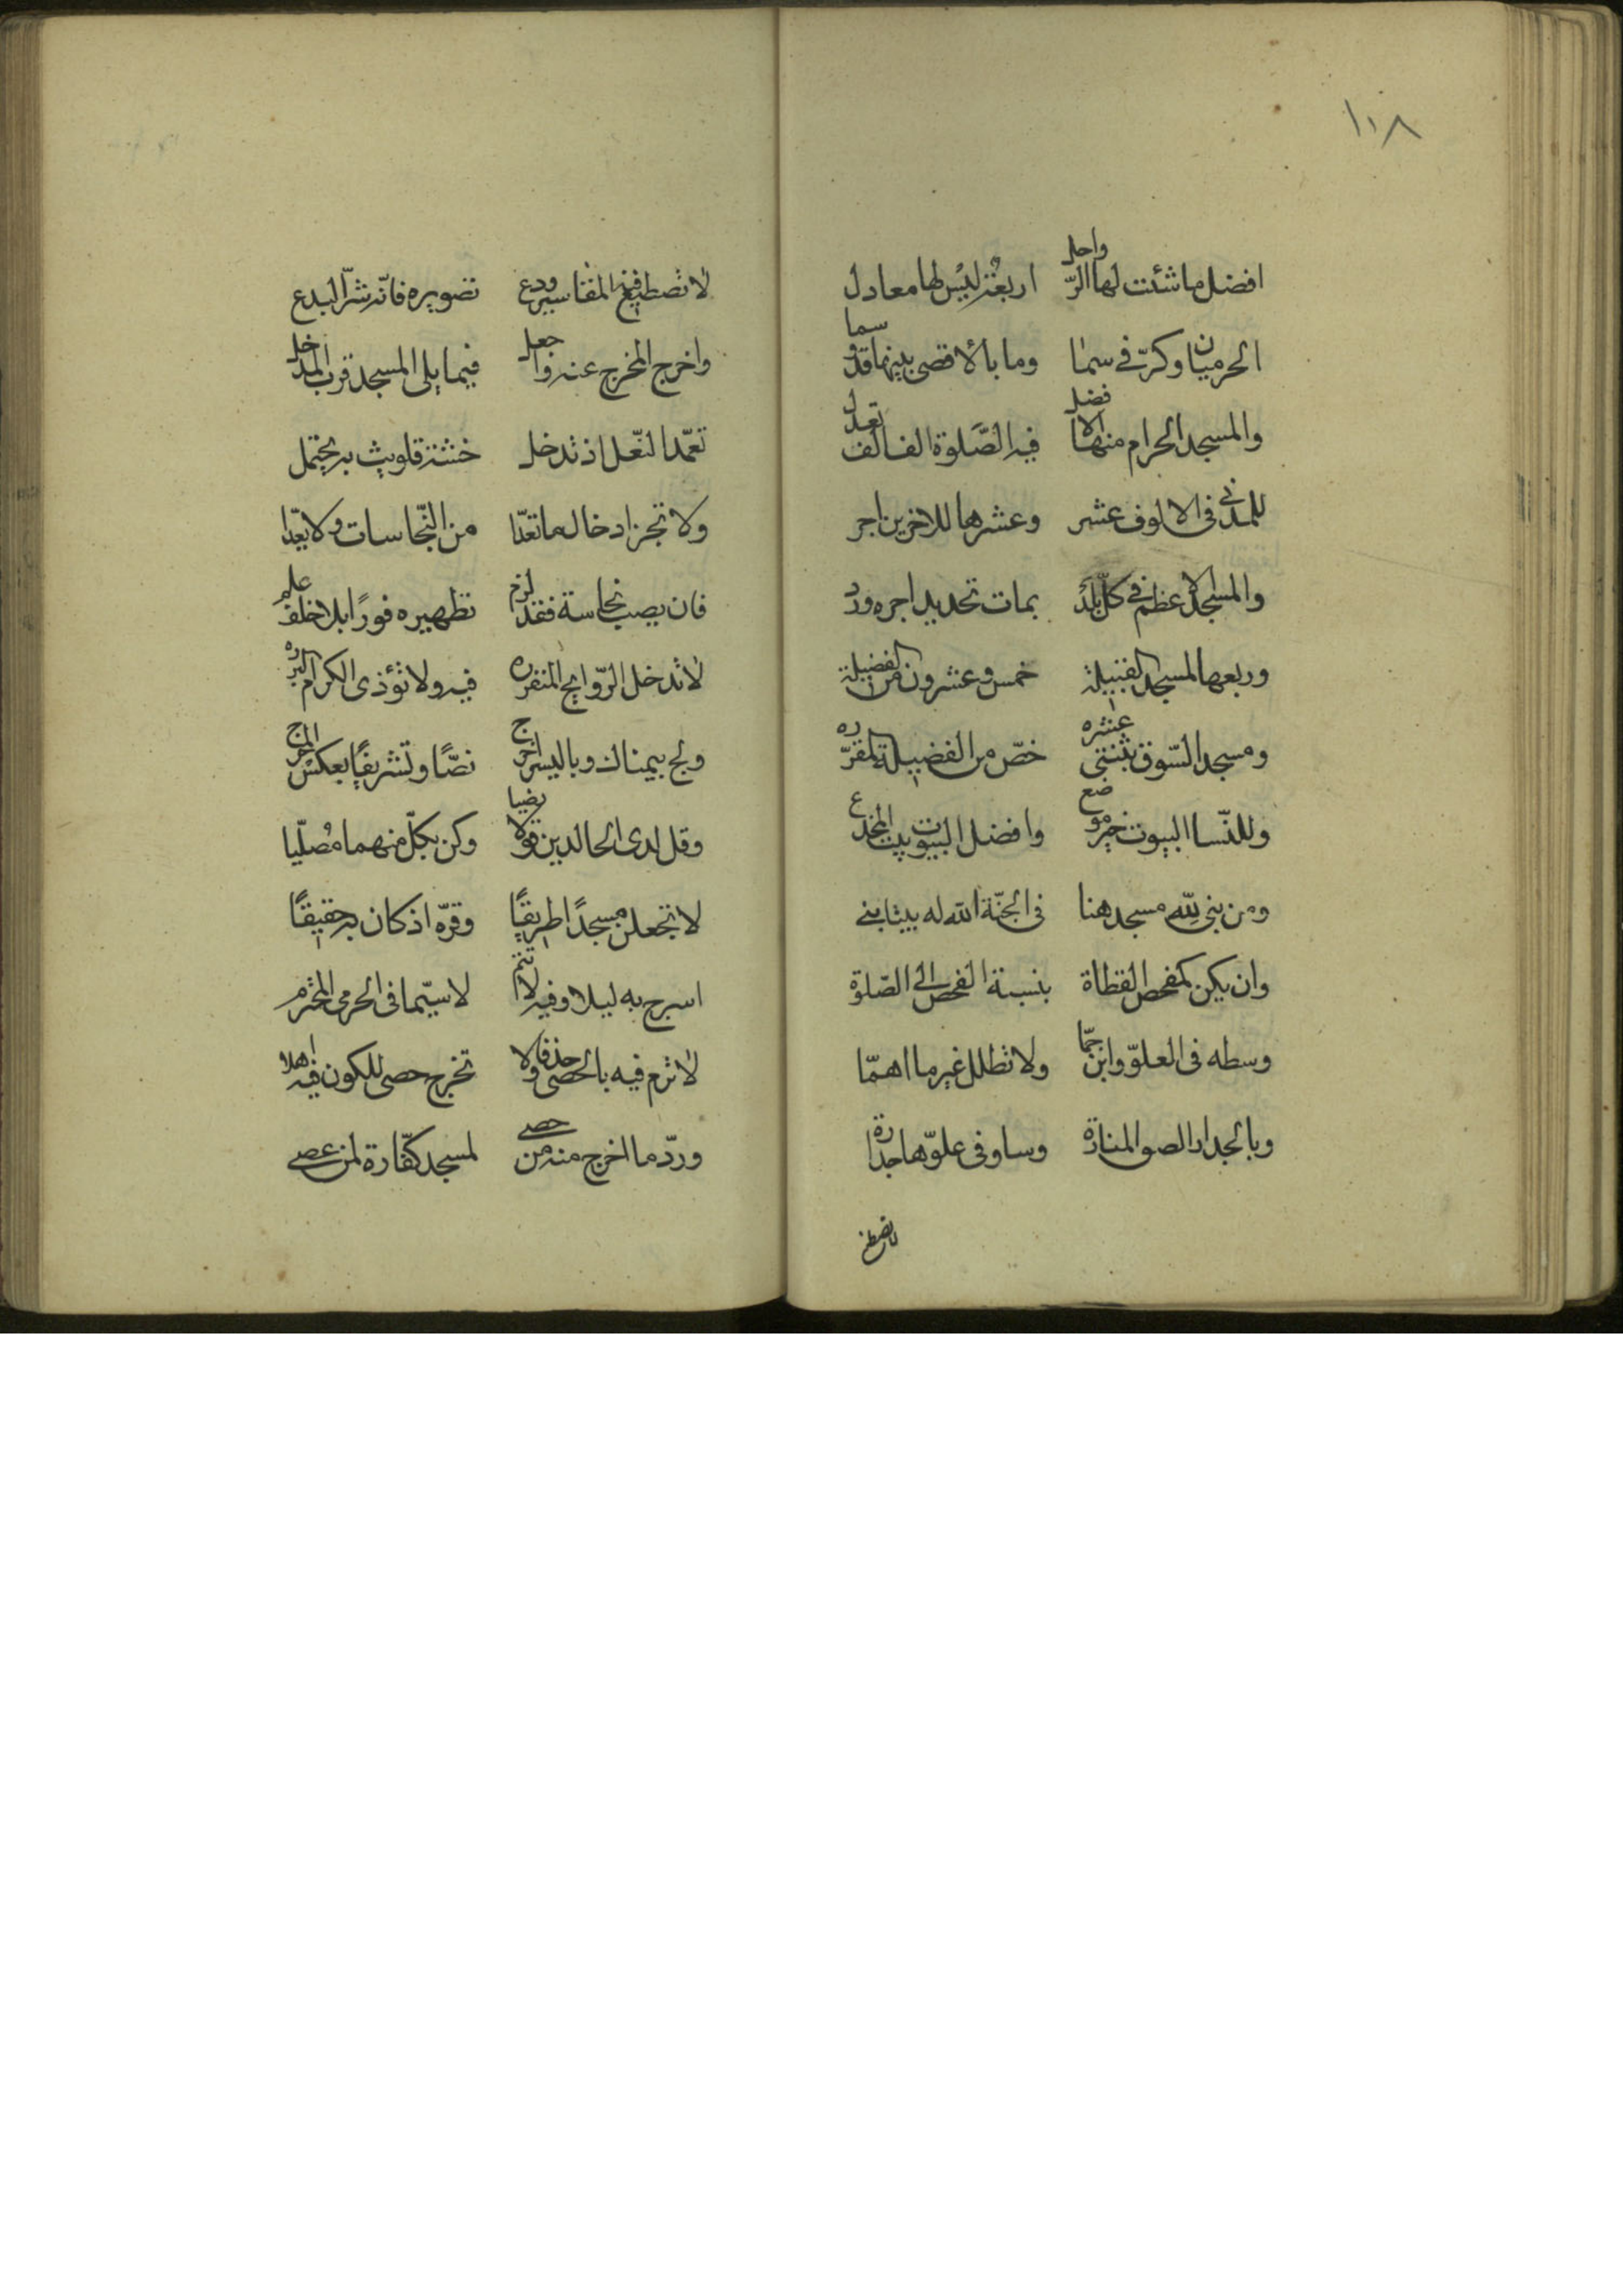 ١٠٨
افضل ما شئت لها الرّواحل اربعة ليس لها معادل
الحرميان وكرّ في سما وما بالاقصى بينها قد وسما
والمسجد الحرام منها الافضل فيه الصّلوة الف الف تعدل
للمدني في الالوف عشر وعشرها للاخرين اجر
والمسجد الاعظم في كلّ بلد بمات تحديد اجره ورد
وربعها لمسجد القبيلة خمس وعشرون من الفضيلة
ومسجد السّوق بثنتى عشره خصّ من الفضيلة المقرّره
وللنّسا البيوت خير موضع وافضل البيوت بيت المخدع
ومن بنى لله مسجد هنا فى الجنّة الله له بيتا بنى
وان يكن كمفحص القطاة بنسبة الفحص الى الصّلوة
وسطه فى العلوّ وابن جمّا ولا تظلل غير ما اهمّا
وبالجدار الصق المنارة وساو فى علوّها جداره
لا تصطنع
لا تصطنع فيه المقاسير ودع تصويره فانّه شرّ البدع
واخرج المخرج عنه واجعل فيما يلى المسجد قرب المدخل
تعمّد النّعل اذ تدخل خشية تلويث به يحتمل
ولا تجز ادخال ما تعدّا من النّجاسات ولا يعدّا
فان يصب نجاسة فقد لزم تطهيره فورًا بلا خلف علم
لا تدخل الرّوايح المنفره فيه ولا تؤذى الكرام البرره
ولج بيمناك وباليسر اخرج نصًّا وتشريفًا بعكس المخرج
وقل لدى الحالين قولا رضيا وكن بكلّ منهما مصلّيا
لا تجعلن مسجدًا طريقًا وقرّه اذ كان به حقيقًا
اسرج به ليلا وفيه لا تنم لا سيّما فى الحرمى المحترم
لا ترم فيه بالحصى حذفا ولا تخرج حصى للكون فيه اهلا
وردّ ما اخرج منه من حصى لمسجد كفّارة لمن عصى